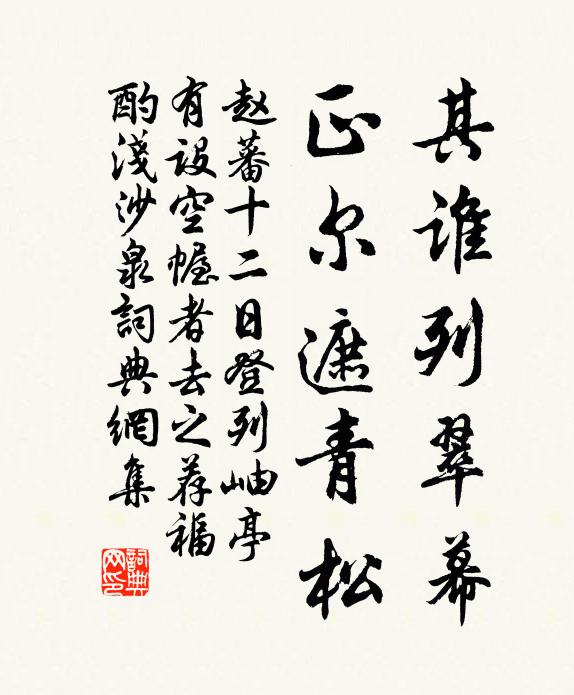 其谁列翠幕
正尔遮青松
赵蕃十二日登列岫亭
有设空幄者去之荐福
酌浅沙泉词典網集
詞典網印